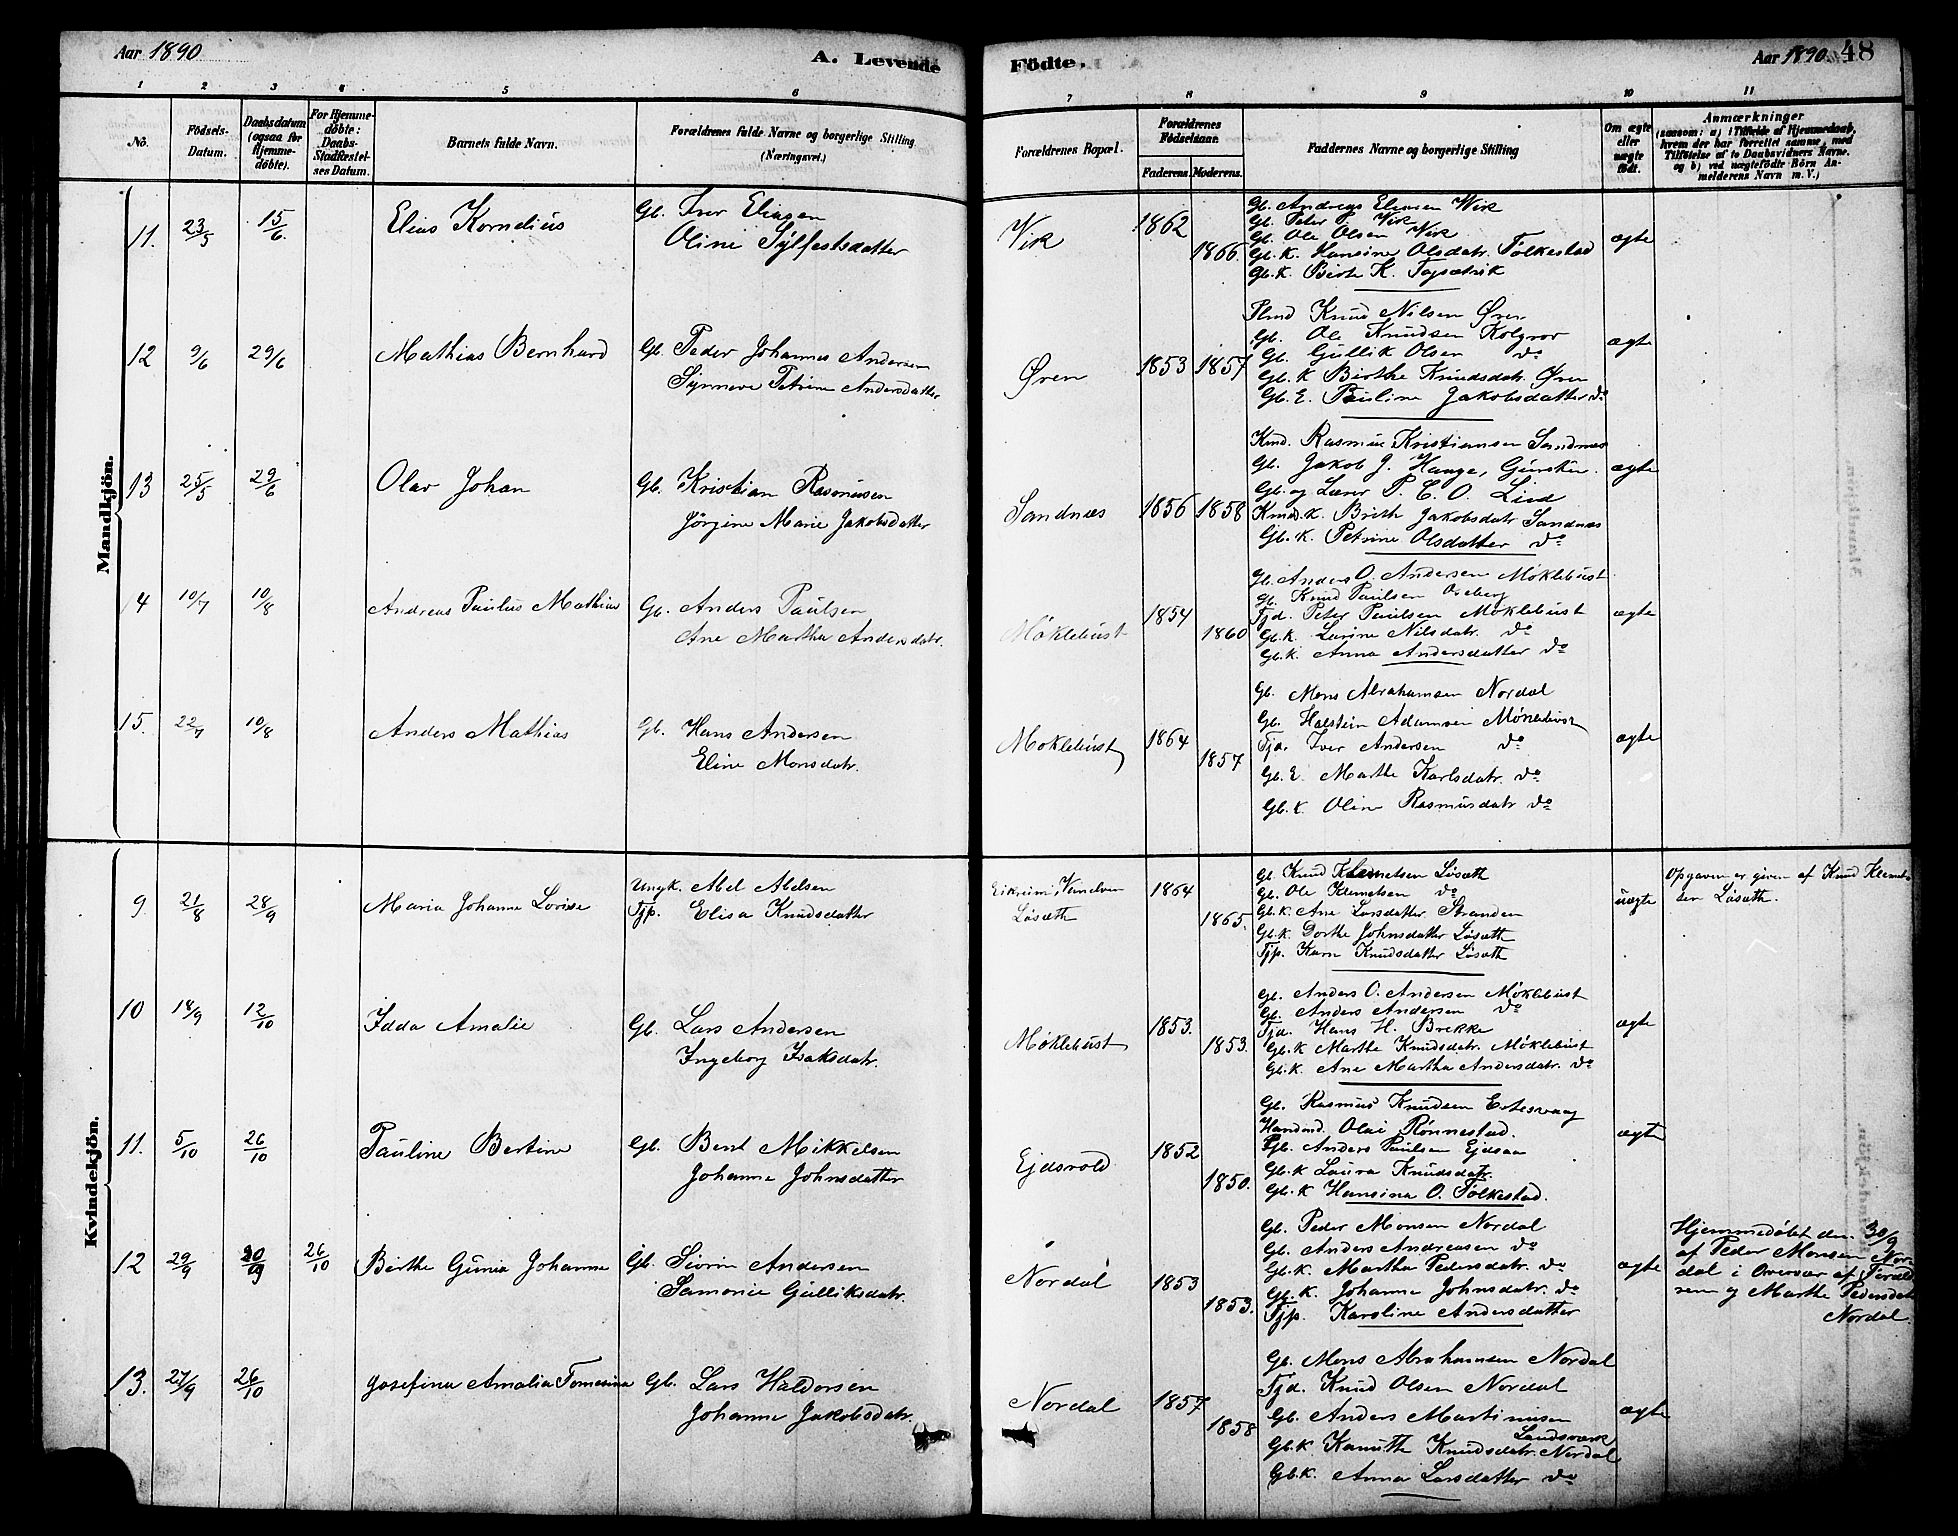 Aar 1890
A. Levende
Födte.
Aar 1890. 48
1 2 3 4 5 6 7 8 9 10 11
No.
Födsels-Datum.
Daabsdatum (ogsaa for Hjemmedöbte).
For Hjemmedöbte: Daabs-Stadfæstelses Datum.
Barnets fulde Navn.
Forældrenes fulde Navne og borgerlige Stilling (Næringsvei.)
Forældrenes Bopæl.
Forældrenes Födselsaar.
Faderens. Moderens.
Faddernes Navne og borgerlige Stilling
Om ægte eller uægte födt.
Anmærkninger
(saasom: a) i Tilfælde af Hjemmedaab, hvem der har forrettet samme, med Tilföielse af to Daabsvidners Navne, og b) ved uægtefödte Börn Anmelderens Navn m. V.)
Mandkjön.
11. 23/5 15/6. Elias Kornelius
Gb. Iver Eliasen
Oline Sylfestsdatter
Virk 1862 1866.
Gb. Andreas Eliasen Wirk
Gb. Peter P. Wirk
Gb. Ole Olsen Wirk
Gb. K. Hansine Olsdatr. Folkestad
Gb. K. Birte K.
ægte
12 9/6 29/6 Mathias Bernhard
Gb. Peder Johannes Andersen
Synneve Petrine Andersdatter
Øren 1853 1857
Knud Nilsen Øren
Gb. Ole Knudsen Kolgrov
Gb. Gullik Olsen do
Gb. K Birthe Knudsdatr. Øren
Gb. E. Pauline Jakobsdatter do
ægte
13 25/5 29/6 Olav Johan
Gb. Kristian Rasmusen
Jørgine Marie Jakobsdatter
Sandnæs 1856 1858
Rasmus Kristiansen Sandnæs
Gb. Jakob J. Hauge,
Gb. og Lærer P. C. O. Lied
K. Brith Jakobsdatr Sandnæs
Gb. K. Petrine Olsdatter do
ægte
14 10/7 10/8 Andreas Paulus Mathias
Gb. Anders Paulsen
Ane Martha Andersdatr.
Møklebust 1854 1860
Gb. Anders O. Andersen Møklebust
Gb. Knud Paulsen Oseberg
Tjd. Peter Paulsen Møklebust
Gb. K. Lavine Nilsdatr. do
Gb. K. Anna Andersdatter do
ægte
15. 22/7 10/8 Anders Mathias
Gb. Hans Andersen
Eline Monsdatr.
Møklebust 1864 1857
Gb. Mons Abrahamsen Nordal
Gb. Halstein Adamsen Møklebust
Tjd. Iver Andersen do
Gb. E. Marthe Karlsdatr. do
Gb. K. Oline Rasmusdatr do
ægte
Kvindekjön.
9. 21/8 28/9 Maria Johanne Lovise
Ungk. Abel Abelsen
Tjp. Elisa Knudsdatter
Eikrem, Vanelven
Løsæth 1864 1865.
Gb. Knud Klemetsen Løsæth
Gb. Ole Klemetsen do
Gb. K. Ane Larsdatter Stranden
Gb. K. Dorthe Johnsdatter Løsæth
Tjp. Karn Knudsdatter Løsæth
uægte
Opgaven er given af Knud Klemetsen Løsæth.
10 14/9 12/10 Idda Amalie
Gb. Lars Andersen
Ingeborg Isaksdatr.
Møklebust 1853. 1853.
Gb. Anders O. Andersen Møklebust
Gb. Anders Andersen do
Tjd. Hans H. Brekke
Gb. K Marthe Knudsdatr. Møklebust
Gb. K. Ane Martha Andersdatr. do
ægte
11. 5/10 26/10 Pauline Bertine
Gb. Bent Mikkelsen
Johanne Johnsdatter
Ejdsvold 1852 1850.
Gb. Rasmus Knudsen
Olai Rønnestad.
Gb. Anders Paulsen Ejdsaa
Gb. K Laura Knudsdatr.
Gb. K Hansina O. Folkestad.
ægte
12 29/9 26/10 Birthe Gunia Johanna
Gb. Sivrin Andersen
Samorie Gulliksdatr.
Nordal 1853 1853.
Gb. Peder Monsen Nordal
Gb. Anders Andreasen do
Gb. K. Martha Pedersdatr. do
Gb. K. Johanne Johnsdatr. do
Tjp. Karoline Andersdatter
ægte
Hjemmedøbt den 30/9
af Peder Monsen Nordal i Overvær af og Marthe Pedersdatr Nordal.
13. 27/9 26/10 Josefina Amalia Tomesina
Gb. Lars Haldorsen
Johanne Jakobsdatr.
Nordal 1857 1858
Gb. Mons Abrahamsen Nordal
Tjd. Knud Olsen Nordal
Gb. Anders Martinusen
Landsværk
Gb. K Kanutte Knudsdatr. Nordal
Gb. K. Anna Larsdatter do
ægte